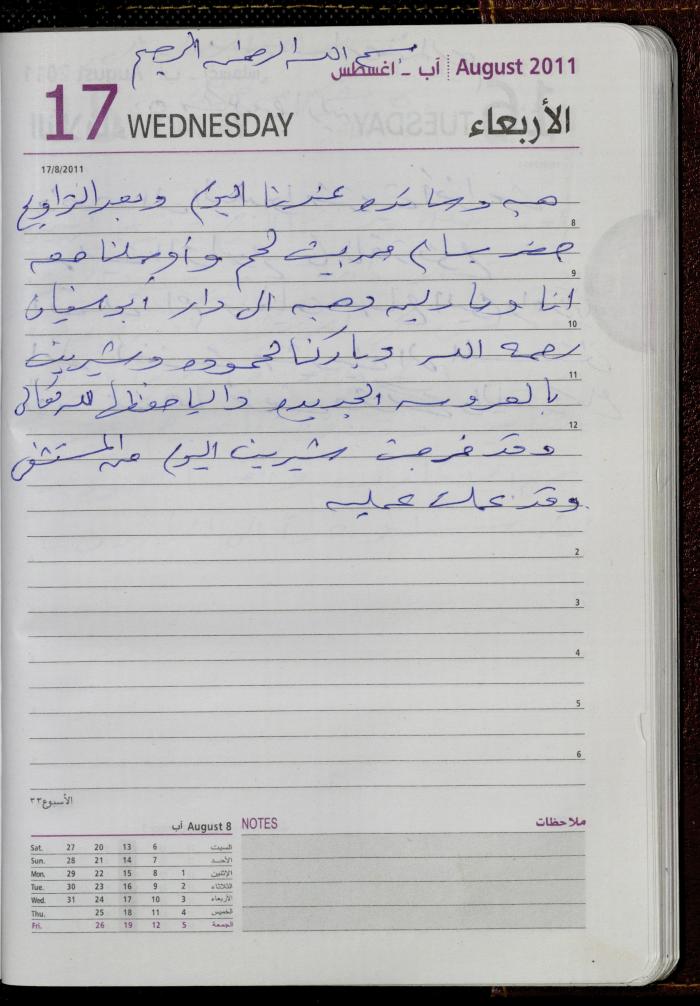 بسم الله الرحمن الرحيم
آب - أغسطس August 2011
17 WEDNESDAY الأربعاء
17/8/2011
هبه وسائده عندنا اليوم وبعد التراويح
8
حضر بسام من بيت لحم وأوصلنا معه
9
انا وماريه وهبه الى دار أبو سفيان
10
رحمه الله وباركنا لحموده وشيرين
11
بالعروسه الجديده داليا حفظها الله تعالى
12
وقد خرجت شيرين اليوم من المستشفى
وقد عملت عمليه
2
3
4
5
6
الأسبوع ٣٣
August 8 آب
NOTES ملاحظات
Sat. 27 20 13 6 السبت
Sun. 28 21 14 7 الأحد
Mon. 29 22 15 8 1 الإثنين
Tue. 30 23 16 9 2 الثلاثاء
Wed. 31 24 17 10 3 الأربعاء
Thu. 25 18 11 4 الخميس
Fri. 26 19 12 5 الجمعة